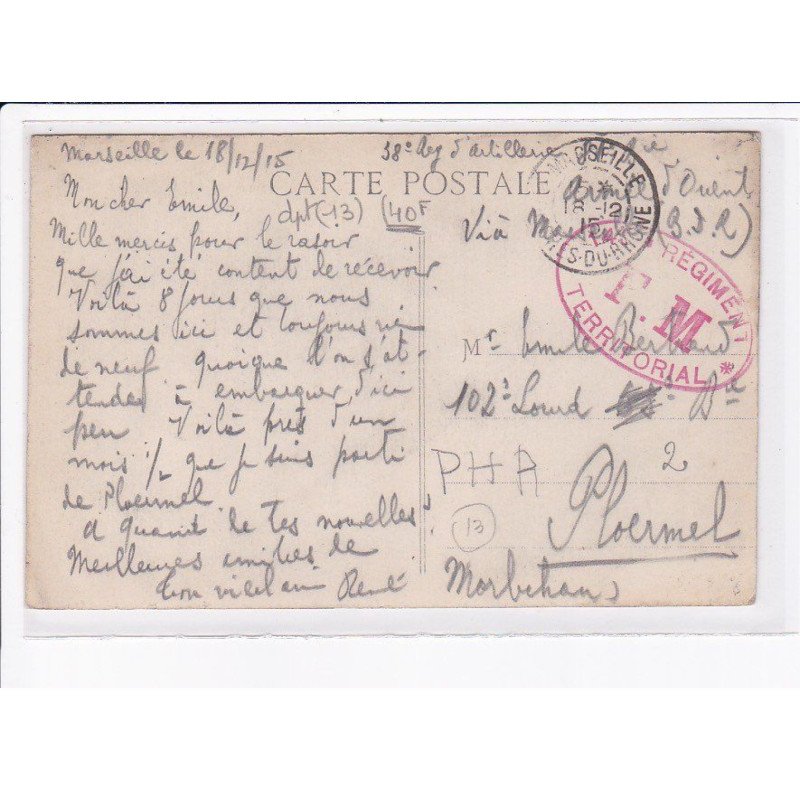 Marseille le 18/12/15
CARTE POSTALE
Mon cher Emile,
Mille mercis pour le rasoir
que j'ai été content de recevoir
Voilà 8 jours que nous
sommes ici et toujours rien
de neuf quoique l'on s'at-
tende à embarquer d'ici
peu. Voilà près d'un
mois 1/2 que je suis parti
de Ploermel
a quand de tes nouvelles
Meilleures amitiés de
ton vieil ami René
dpt (13) (40F
38e Reg d'artillerie
Armée d'Orient
Via Marseille (B.d.R)
MARSEILLE
18-12
15
BCHES-DU-RHONE
RÉGIMENT
F.M
TERRITORIAL *
Mr Emile Bertrand
102e Lourd Bie
2
PHA
13
Ploermel
Morbihan